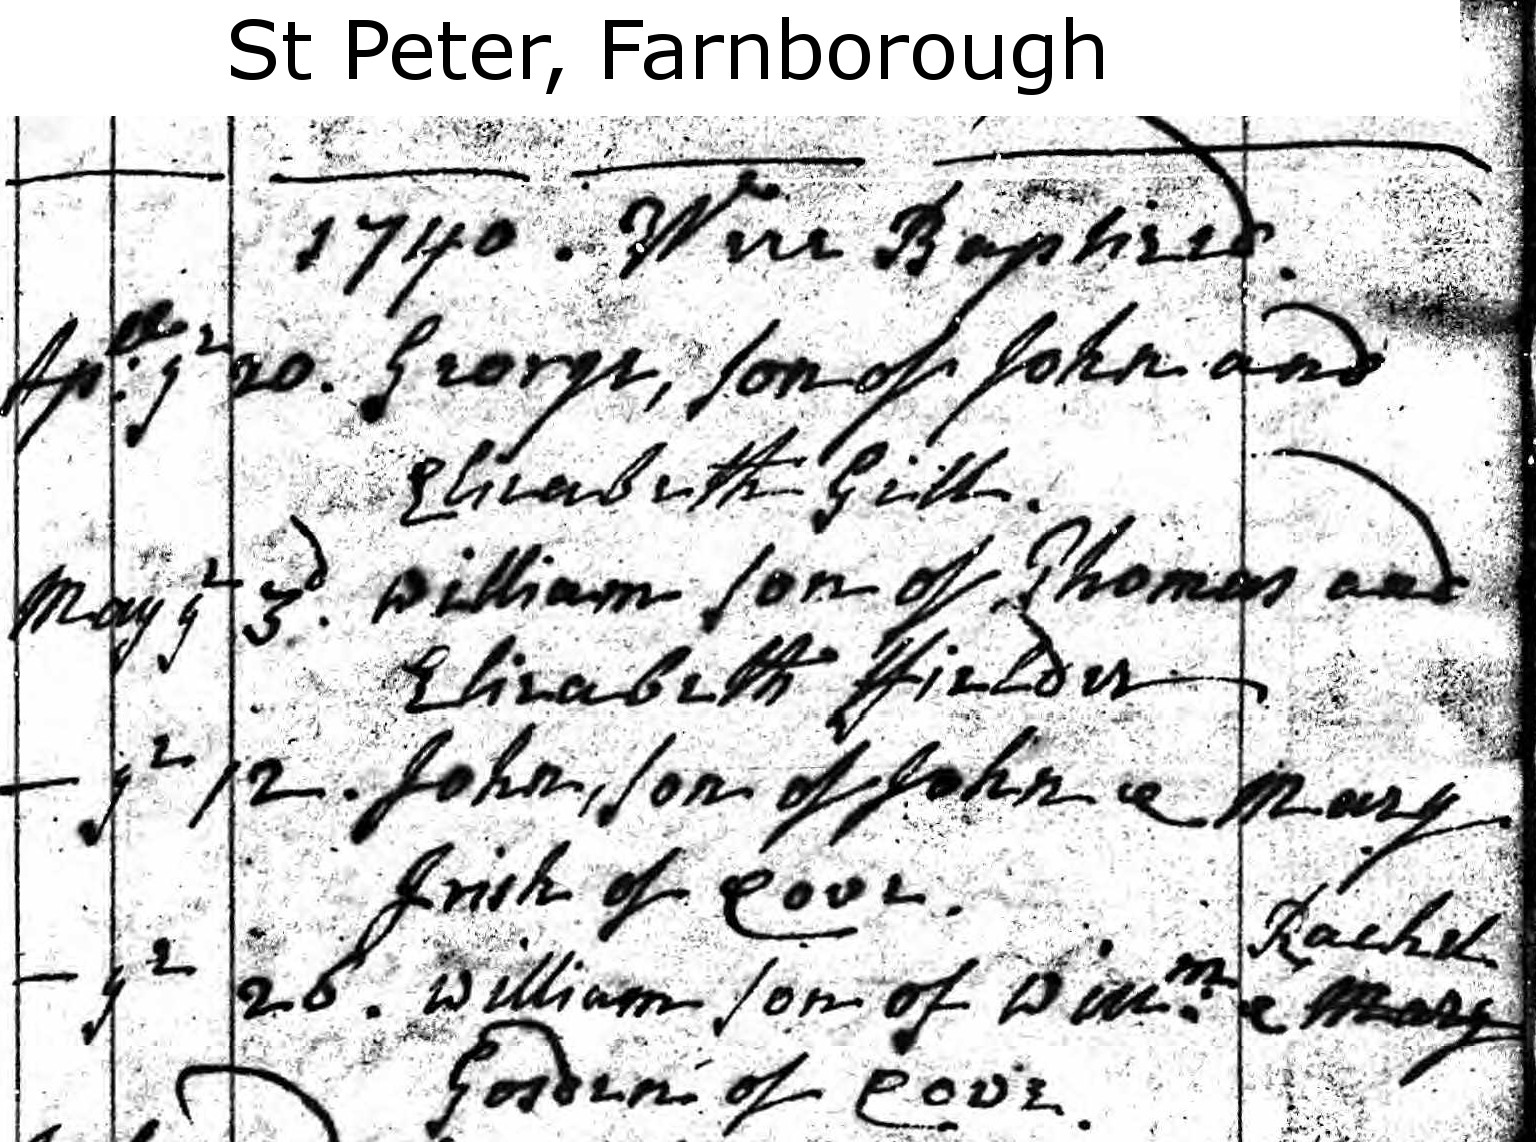 St Peter, Farnborough
1740. Were Baptized.
Ap:ll ye 20. George, son of John and
Elizabeth Gill.
May ye 3d. William son of Thomas and
Elizabeth Ffielder
— ye 12. John, son of John & Mary
Irish of Cove.
Rachel
— ye 26. William son of Will:m & Mary
Gosden of Cove.